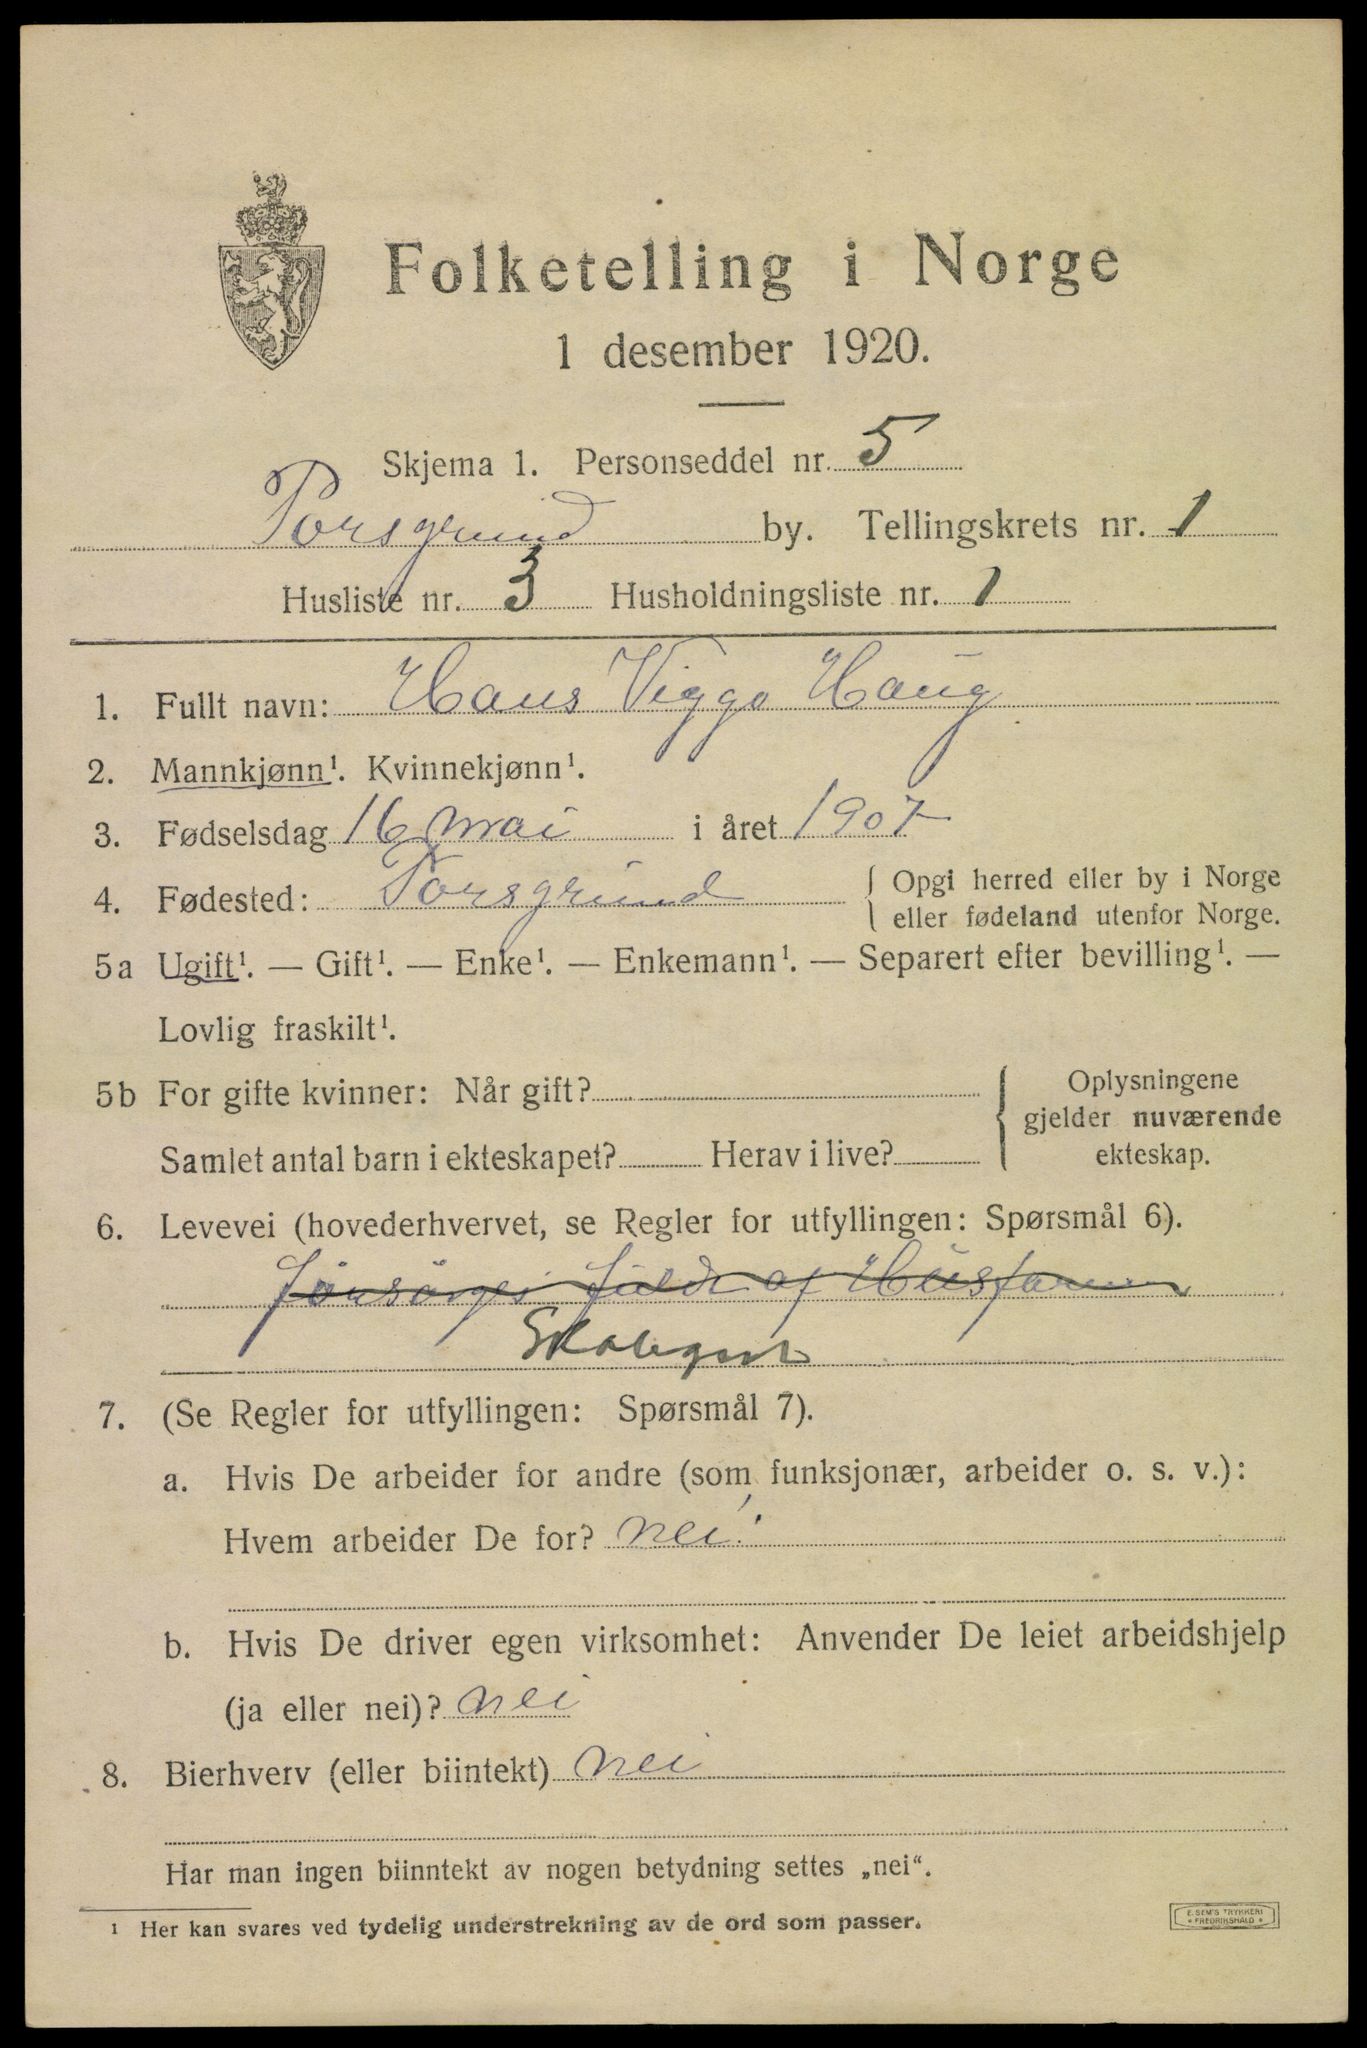 Folketelling i Norge
1 desember 1920.
Skjema 1. Personseddel nr. 5
Porsgrund by. Tellingskrets nr. 1
Husliste nr. 3 Husholdningsliste nr. 1
1. Fullt navn: Hans Viggo Haug
2. Mannkjønn¹. Kvinnekjønn¹.
3. Fødselsdag 16 mai i året 1907
4. Fødested: Porsgrund { Opgi herred eller by i Norge
eller fødeland utenfor Norge.
5a Ugift¹. — Gift¹. — Enke¹. — Enkemann¹. — Separert efter bevilling¹. —
Lovlig fraskilt¹.
5b For gifte kvinner: Når gift?
Samlet antal barn i ekteskapet? Herav i live?
{ Oplysningene
gjelder nuværende
ekteskap.
6. Levevei (hovederhvervet, se Regler for utfyllingen: Spørsmål 6).
forsørges fuldt af Husfaren
Skolegut
7. (Se Regler for utfyllingen: Spørsmål 7).
a. Hvis De arbeider for andre (som funksjonær, arbeider o. s. v.):
Hvem arbeider De for? nei!
b. Hvis De driver egen virksomhet: Anvender De leiet arbeidshjelp
(ja eller nei)? nei
8. Bierhverv (eller biintekt) nei
Har man ingen biinntekt av nogen betydning settes „nei“.
¹ Her kan svares ved tydelig understrekning av de ord som passer.
E. SEM'S TRYKKERI
• FREDRIKSHALD •